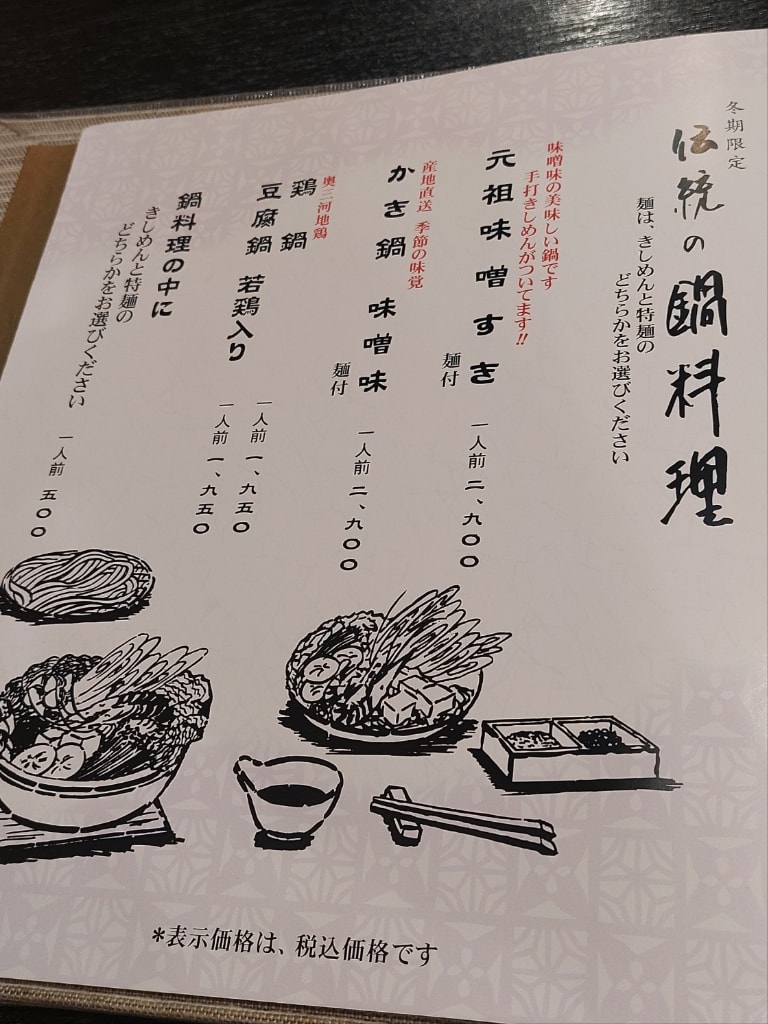 冬期限定
伝統の鍋料理
麺は、きしめんと特麺の
どちらかをお選びください
味噌味の美味しい鍋です
手打きしめんがついてます!!
元祖味噌すき
麺付
一人前 二、九〇〇
産地直送 季節の味覚
かき鍋 味噌味
麺付
一人前 二、九〇〇
奥三河地鶏
鶏鍋
一人前 一、九五〇
豆腐鍋 若鶏入り
一人前 一、九五〇
鍋料理の中に
きしめんと特麺の
どちらかをお選びください
一人前 五〇〇
*表示価格は、税込価格です